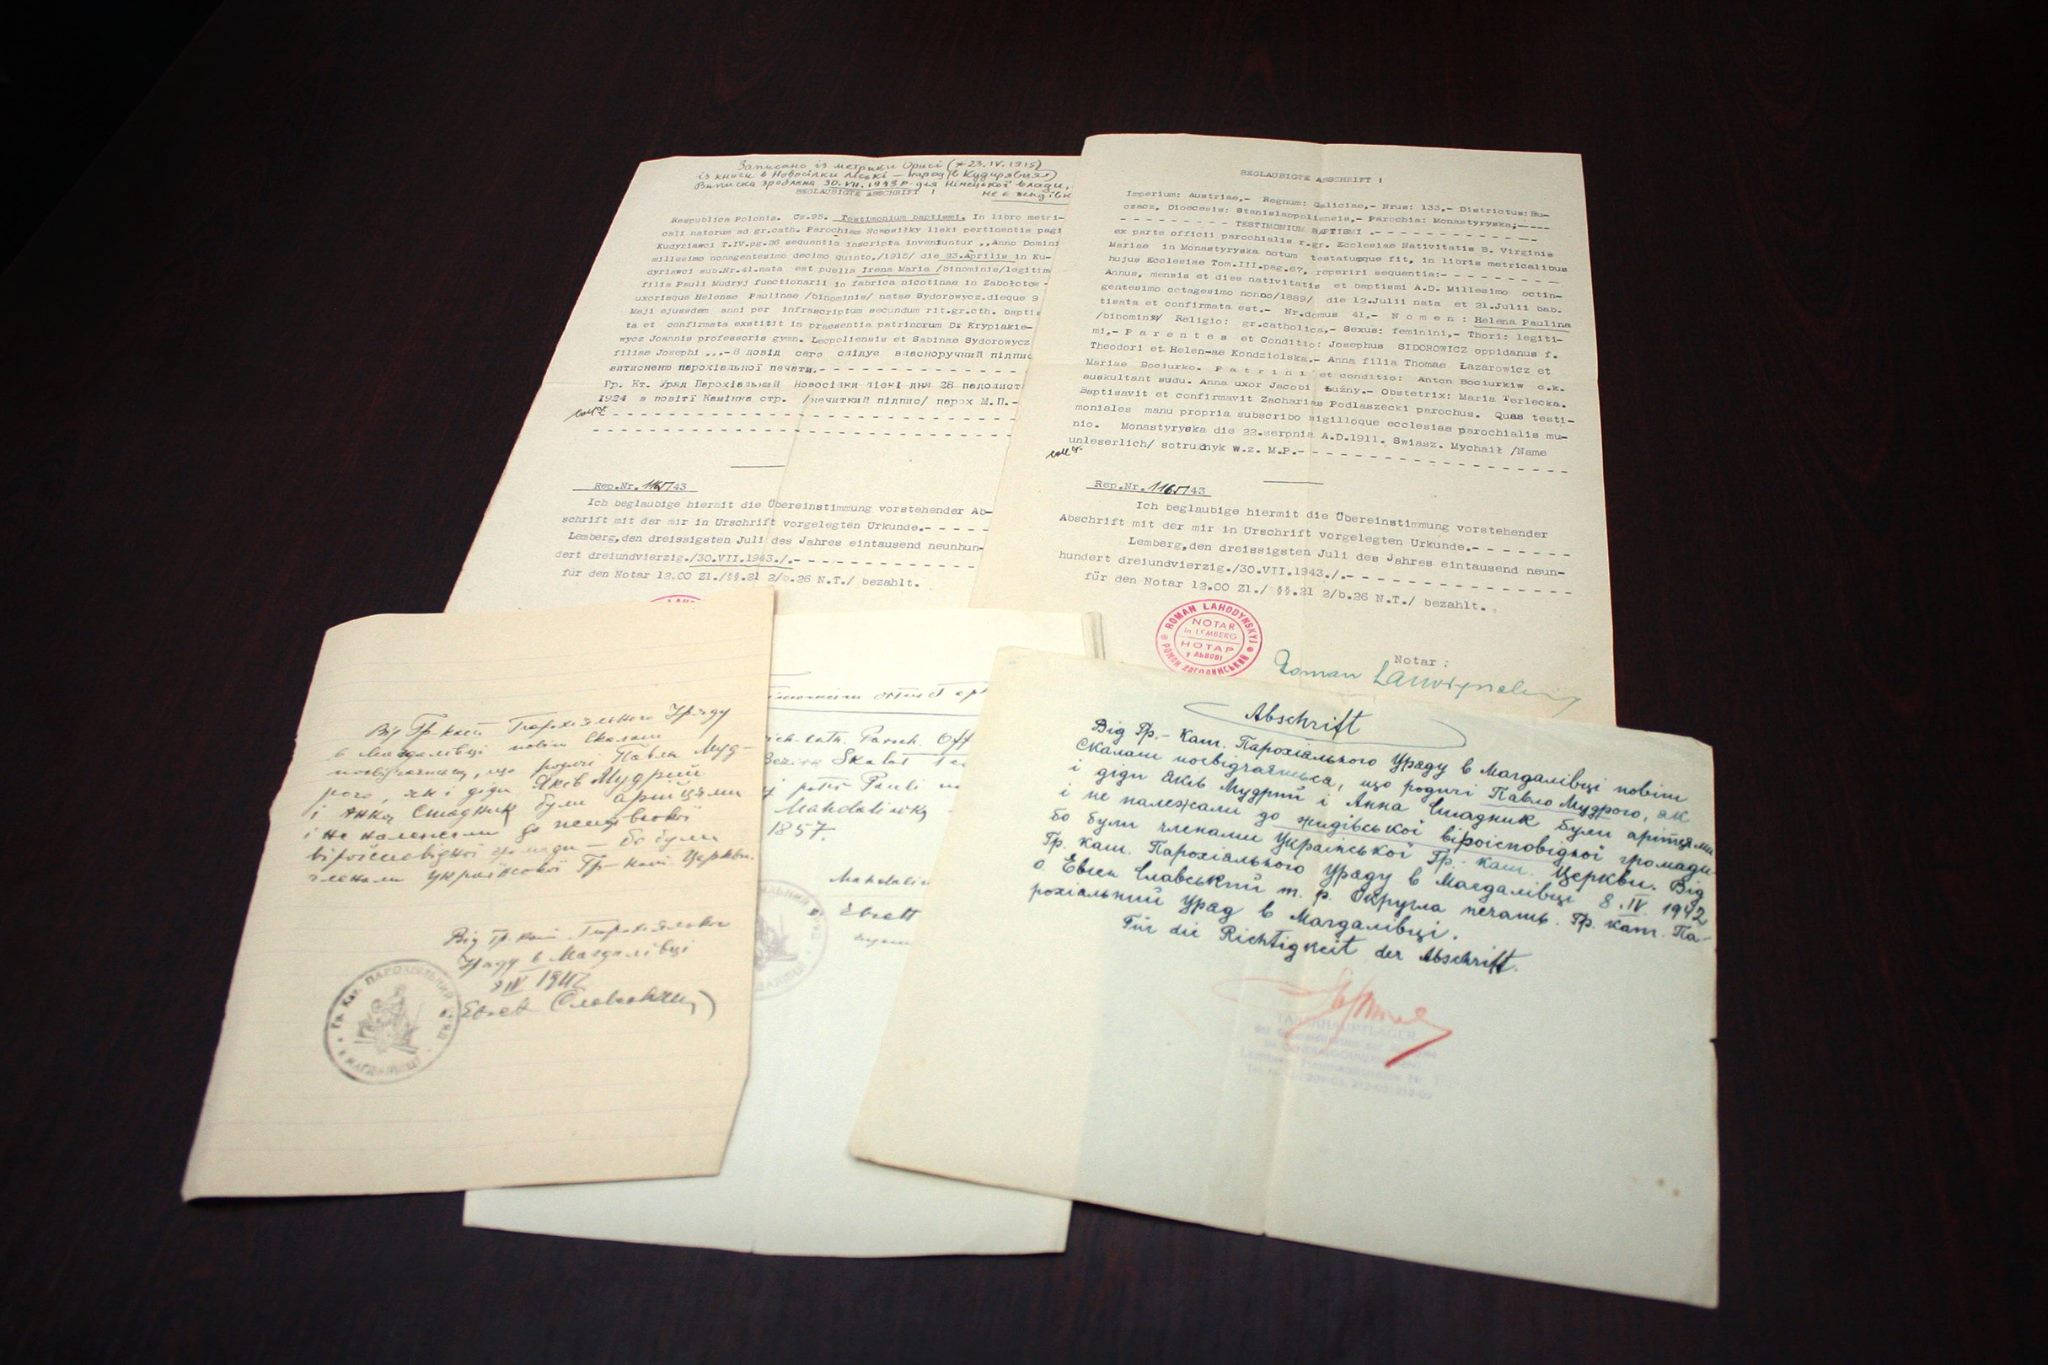 Записано із метрики Орисі (* 23.IV.1915)
із книги в Новосілки ліські – народ. в Кудирявцях)
Виписка зроблена 30.VII.1943 р. для Німецької влади,
BEGLAUBIGTE ABSCHRIFT !
не є жидівк
Respublica Polonia. Cz.95. Testimonium baptismi. In libro metri-
cali natorum ad gr.cath. Parochiam Nowosiłky liski pertinentia pagi
Kudyriawci T.IV.pg.36 sequentia inscripta inveniuntur ,,Anno Domini
millesimo nonagentesimo decimo quinto,/1915/ die 23.Aprilis in Ku-
dyriawci sub.Nr.41.nata est puella Irena Maria /binominis/legitim
filia Pauli Mudryj functionarii in fabrica nicotinae in Zabołotow
uxorisque Helenae Paulinae /binominis/ natae Sydorowycz.dieque 9
Maji ejusdem anni per infrascriptum secundum rit.gr.cth. baptis
ta et confirmata exstitit in praesentia patrinorum Dr Krypiakie-
wycz Joannis professoris gymn. Leopoliensis et Sabinae Sydorowycz
filiae Josephi ,,.-В повід сего слідує власноручний підпис
витисненє парохіяльної печати.
Гр. Кт. Уряд Парохіяльний Новосілки ліскі дня 28 падолист
1924 в повіті Камінка стр. /нечиткий підпис/ парох М.П.-
Rep.Nr. 1165/43
Ich beglaubige hiermit die Übereinstimmung vorstehender Ab-
schrift mit der mir in Urschrift vorgelegten Urkunde.-
Lemberg,den dreissigsten Juli des Jahres eintausend neunhun-
dert dreiundvierzig./30.VII.1943./.-
für den Notar 12.00 Zl./§§.21 2/b.26 N.T./ bezahlt.
BEGLAUBIGTE ABSCHRIFT !
Imperium: Austriae,- Regnum: Galiciae,- Nrus: 133,- Districtus: Bu-
czacz, Dioecesis: Stanislaopoliensis,- Parochia: Monastyryska;-
TESTIMONIUM BAPTISMI .-
ex parte officii parochialis r.gr. Ecclesiae Nativitatis B. Virginis
Mariae in Monastyryska notum testatumque fit, in libris metricalibus
hujus Ecclesiae Tom.III.pag.67, reperiri sequentia:-
Annus, mensis et dies nativitatis et baptismi A.D. Millesimo octin-
gentesimo octagesimo nonno/1889/ die 12.Julii nata et 21.Julii bab.
tisata et confirmata est.- Nr.domus 41,- N o m e n : Helena Paulina
/binominis/ Religio: gr.catholica,- Sexus: feminini,- Thori: legiti-
mi,- P a r e n t e s et Conditio: Josephus SIDOROWICZ oppidanus f.
Theodori et Helen-ae Kondzielska.- Anna filia Thomae Łazarowicz et
Mariae Bociurko. P a t r i n i et conditio: Anton Bociurkiw c.k.
auskultant sudu. Anna uxor Jacobi Łuźny.- Obstetrix: Maria Terlecka.
Baptisavit et confirmavit Zacharias Podlaszecki parochus. Quas testi-
moniales manu propria subscribo sigilloque ecclesiae parochialis mu-
nio. Monastyryska die 22.serpnia A.D.1911. Swiasz. Mychaił /Name
unleserlich/ sotrudnyk w.z. M.P.-
Rep.Nr. 1165/43
Ich beglaubige hiermit die Übereinstimmung vorstehender
Abschrift mit der mir in Urschrift vorgelegten Urkunde.-
Lemberg,den dreissigsten Juli des Jahres eintausend neun-
hundert dreiundvierzig./30.VII.1943./.-
für den Notar 12.00 Zl./ §§.21 2/b.26 N.T./ bezahlt.
ROMAN LAHODYNSKYJ
NOTAR
in LEMBERG
НОТАР
у ЛЬВОВІ
РОМАН ЛАГОДИНСЬКИЙ
Notar :
Від Гр. кат. Парохіяльного Уряду
в Магдалівці повіт Скалат
посвідчаєть, що родичі Павла Муд-
рого, як і діди Яків Мудрий
і Анна Стадник були арійцями
і не належали до жидівської
віроісповідної громади – бо були
членами української Гр-кат. Церкви.
Від Гр. кат. Парохіяльного
Уряду в Магдалівці
8 IV 1942
ГР. КАТ. ПАРОХІЯЛЬНИЙ
Paroch. Off
Bezirk Skalat
patris Pauli
Mahdaliwka
1857.
Mahdaliw
Abschrift
Від Гр.- Кат. Парохіяльного Уряду в Магдалівці повіт
Скалат посвідчається, що родичі Павла Мудрого, як
і діди Яків Мудрий і Анна Стадник були арійцями
і не належали до жидівської віроісповідної громади
бо були членами Української Гр.- кат. Церкви. Від
Гр. кат. Парохіяльного Уряду в Магдалівці 8.IV. 1942
о Евген Славський т. р. Округла печать. Гр. кат. Па-
рохіяльний Уряд в Магдалівці.
Für die Richtigkeit der Abschrift.